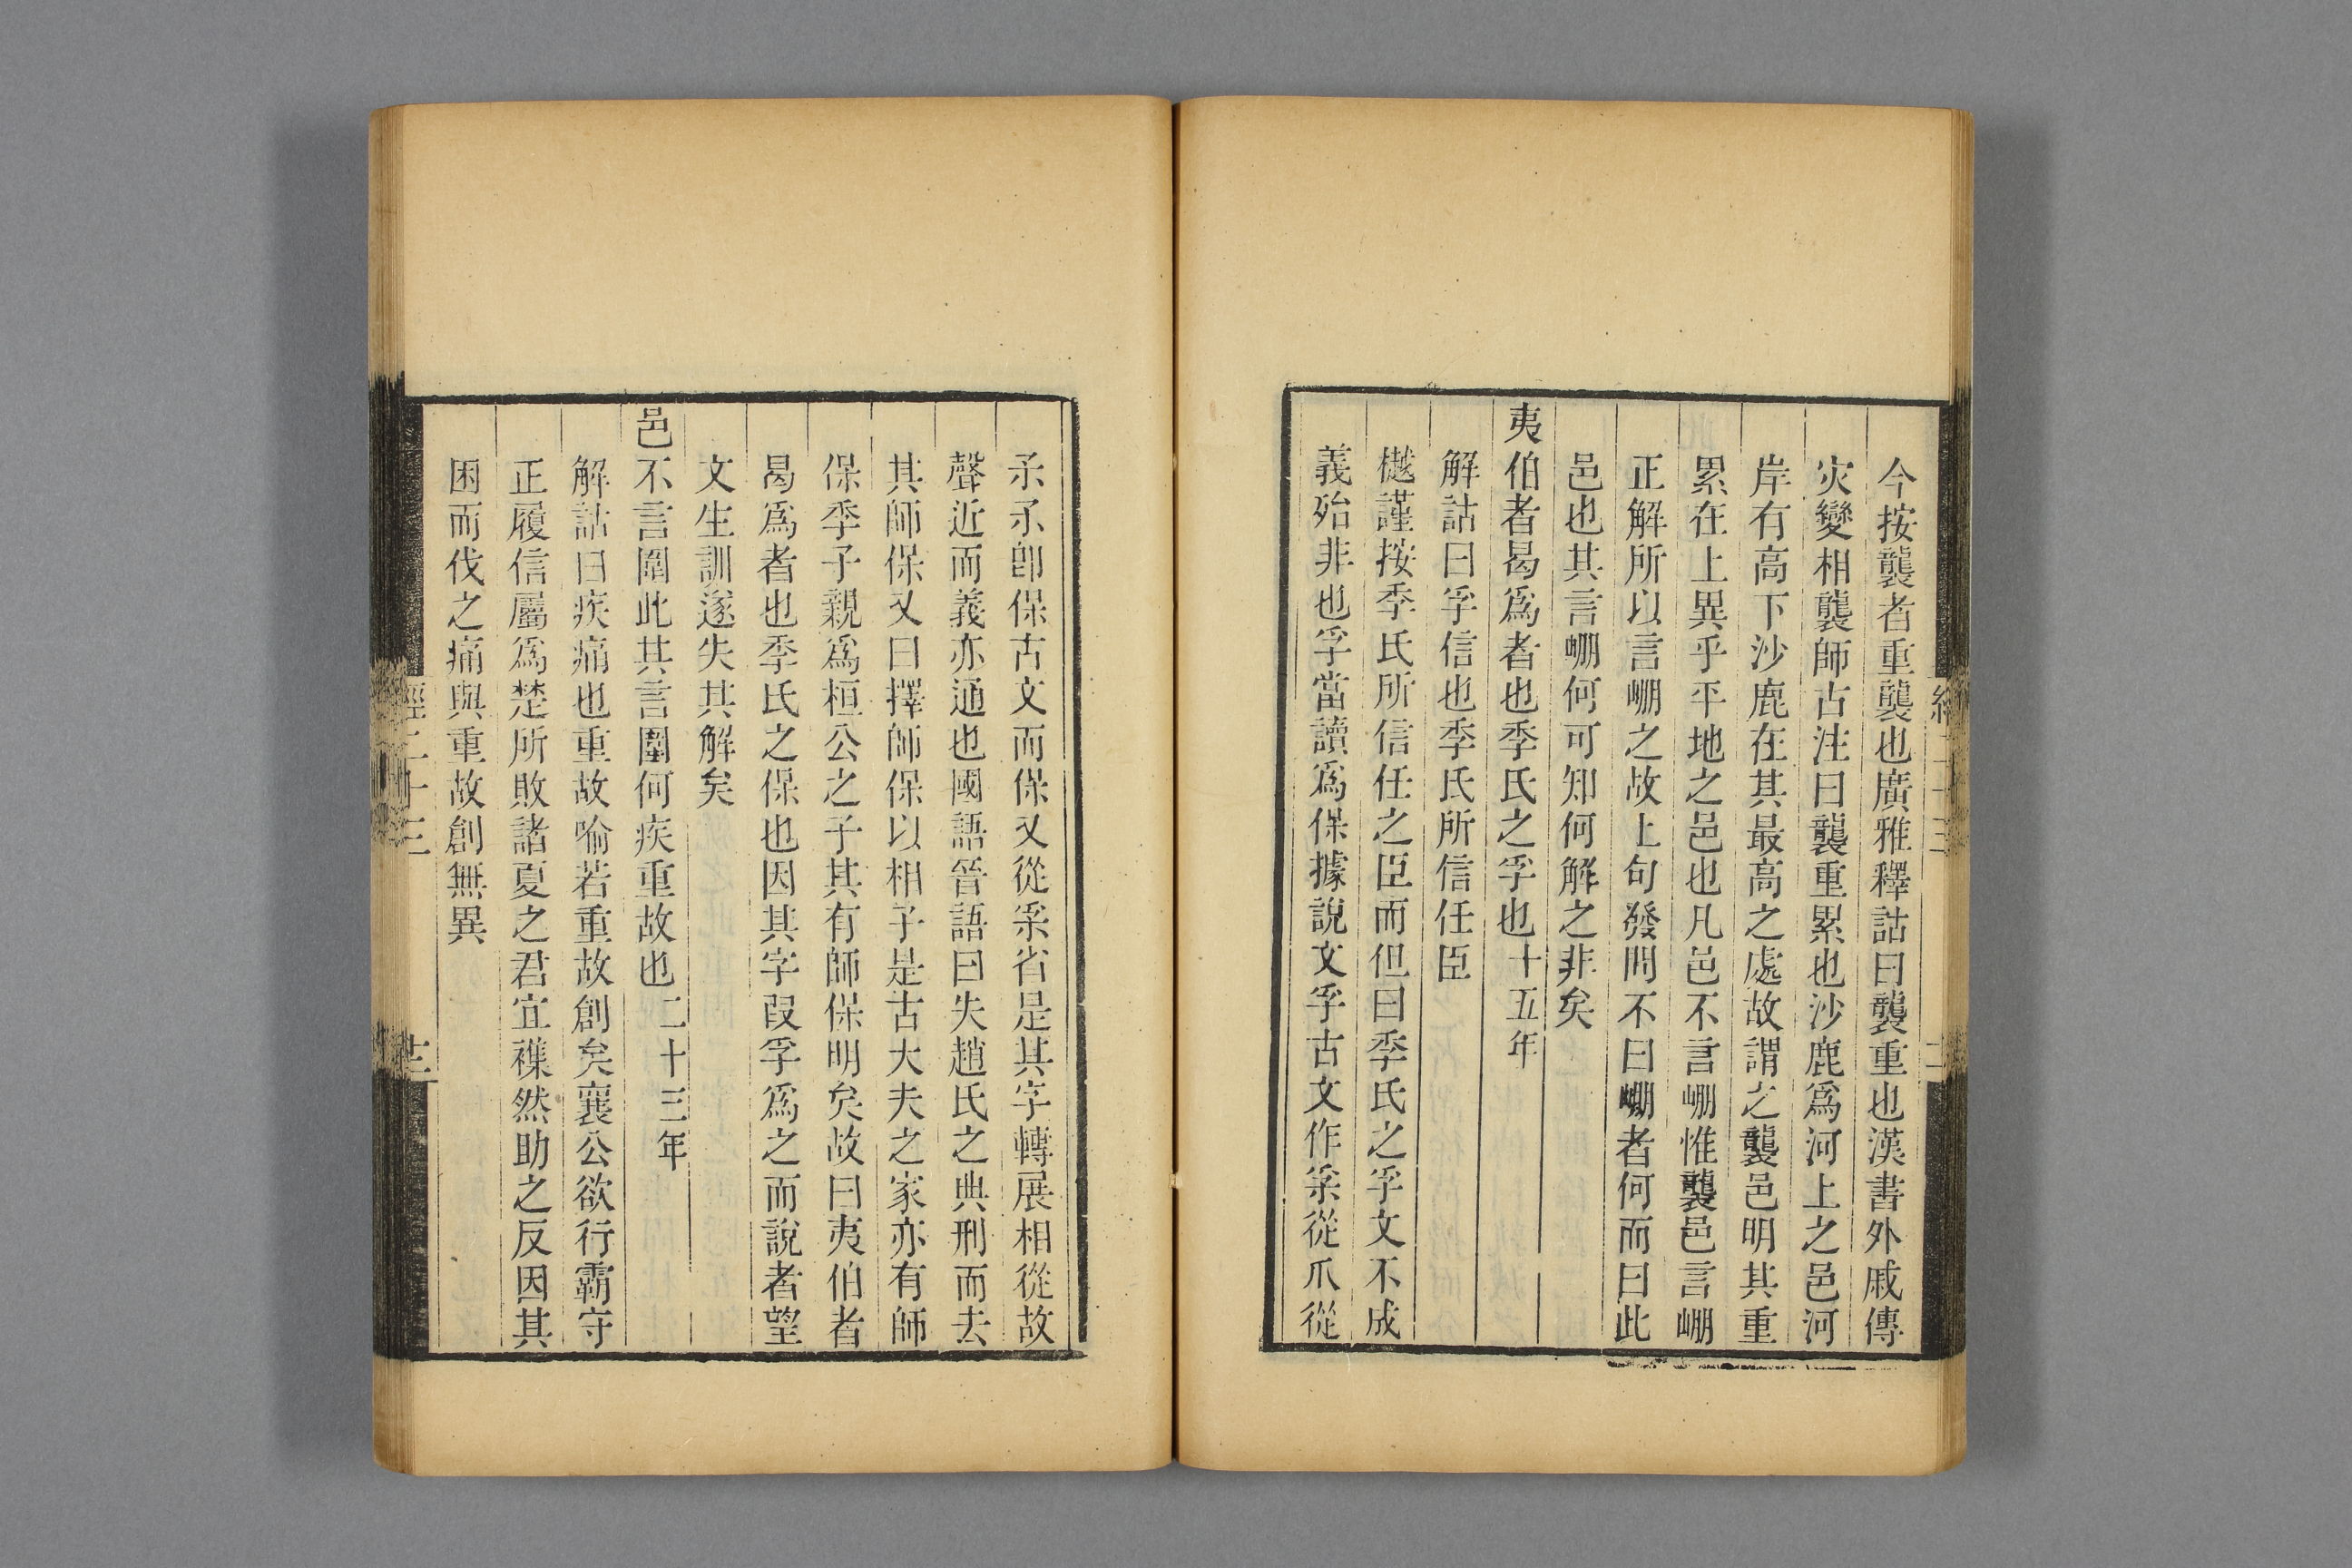 今按襲者重襲也廣雅釋詁曰襲重也漢書外戚傳
灾變相襲師古注曰襲重累也沙鹿爲河上之邑河
岸有高下沙鹿在其最高之處故謂之襲邑明其重
累在上異乎平地之邑也凡邑不言崩惟襲邑言崩
正解所以言崩之故上句發問不曰崩者何而曰此
邑也其言崩何可知何解之非矣
夷伯者曷爲者也季氏之孚也十五年
解詁曰孚信也季氏所信任臣
樾謹按季氏所信任之臣而但曰季氏之孚文不成
義殆非也孚當讀爲保據說文孚古文作𤓽從爪從
𣎼𣎼卽保古文而保又從𤓽省是其字轉展相從故
聲近而義亦通也國語晉語曰失趙氏之典刑而去
其師保又曰擇師保以相子是古大夫之家亦有師
保季子親爲桓公之子其有師保明矣故曰夷伯者
曷爲者也季氏之保也因其字叚孚爲之而說者望
文生訓遂失其解矣
邑不言圍此其言圍何疾重故也二十三年
解詁曰疾痛也重故喻若重故創矣襄公欲行霸守
正履信屬爲楚所敗諸夏之君宜襍然助之反因其
困而伐之痛與重故創無異
經二十三